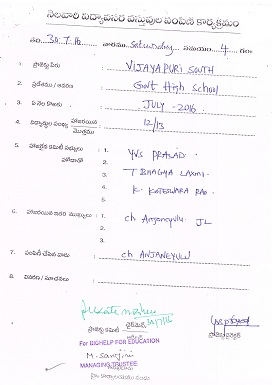 నెలవారి విద్యావసర వస్తువుల పంపిణీ కార్యక్రమం
తేది. 30.7.16 వారము Saturday సమయం 4 గం॥
1. ప్రాజెక్టు పేరు : VIJAYAPURI SOUTH
2. ప్రదేశము / ఆవరణ : Govt High School
3. ఏ నెల కొరకు : JULY - 2016
4. విద్యార్థుల సంఖ్య హాజరయిన / మొత్తము : 12/13
5. హాజరైన కమిటీ సభ్యులు : 1. YVS PRASAD
హోదాతో 2. T BHAGYA LAXMI
3. K. KOTESWARA RAO
6. హాజరయిన ఇతర ముఖ్యులు : 1. ch Anjaneyulu JL
2.
7. పంపిణీ చేసిన వారు : ch ANJANEYULU
8. వివరణ / సూచనలు :
ప్రాజెక్టు కమిటీ ఛైర్మన్
30/7/16
For BIGHELP FOR EDUCATION
MANAGING TRUSTEE